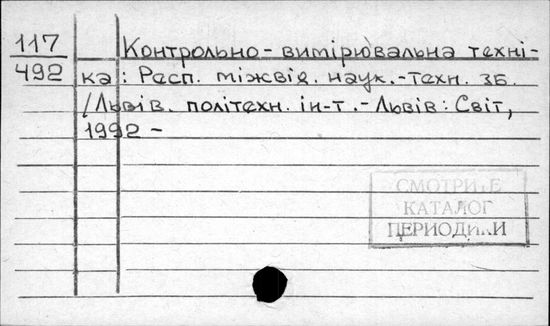 117
492
Контрольно-вимірювальна техні-
ка: Респ. міжвід. наук.-техн. зб.
/Львів. політехн. ін-т.-Львів: Світ,
1992 -
СМОТРИТЕ
КАТАЛОГ
ПЕРИОДИКИ